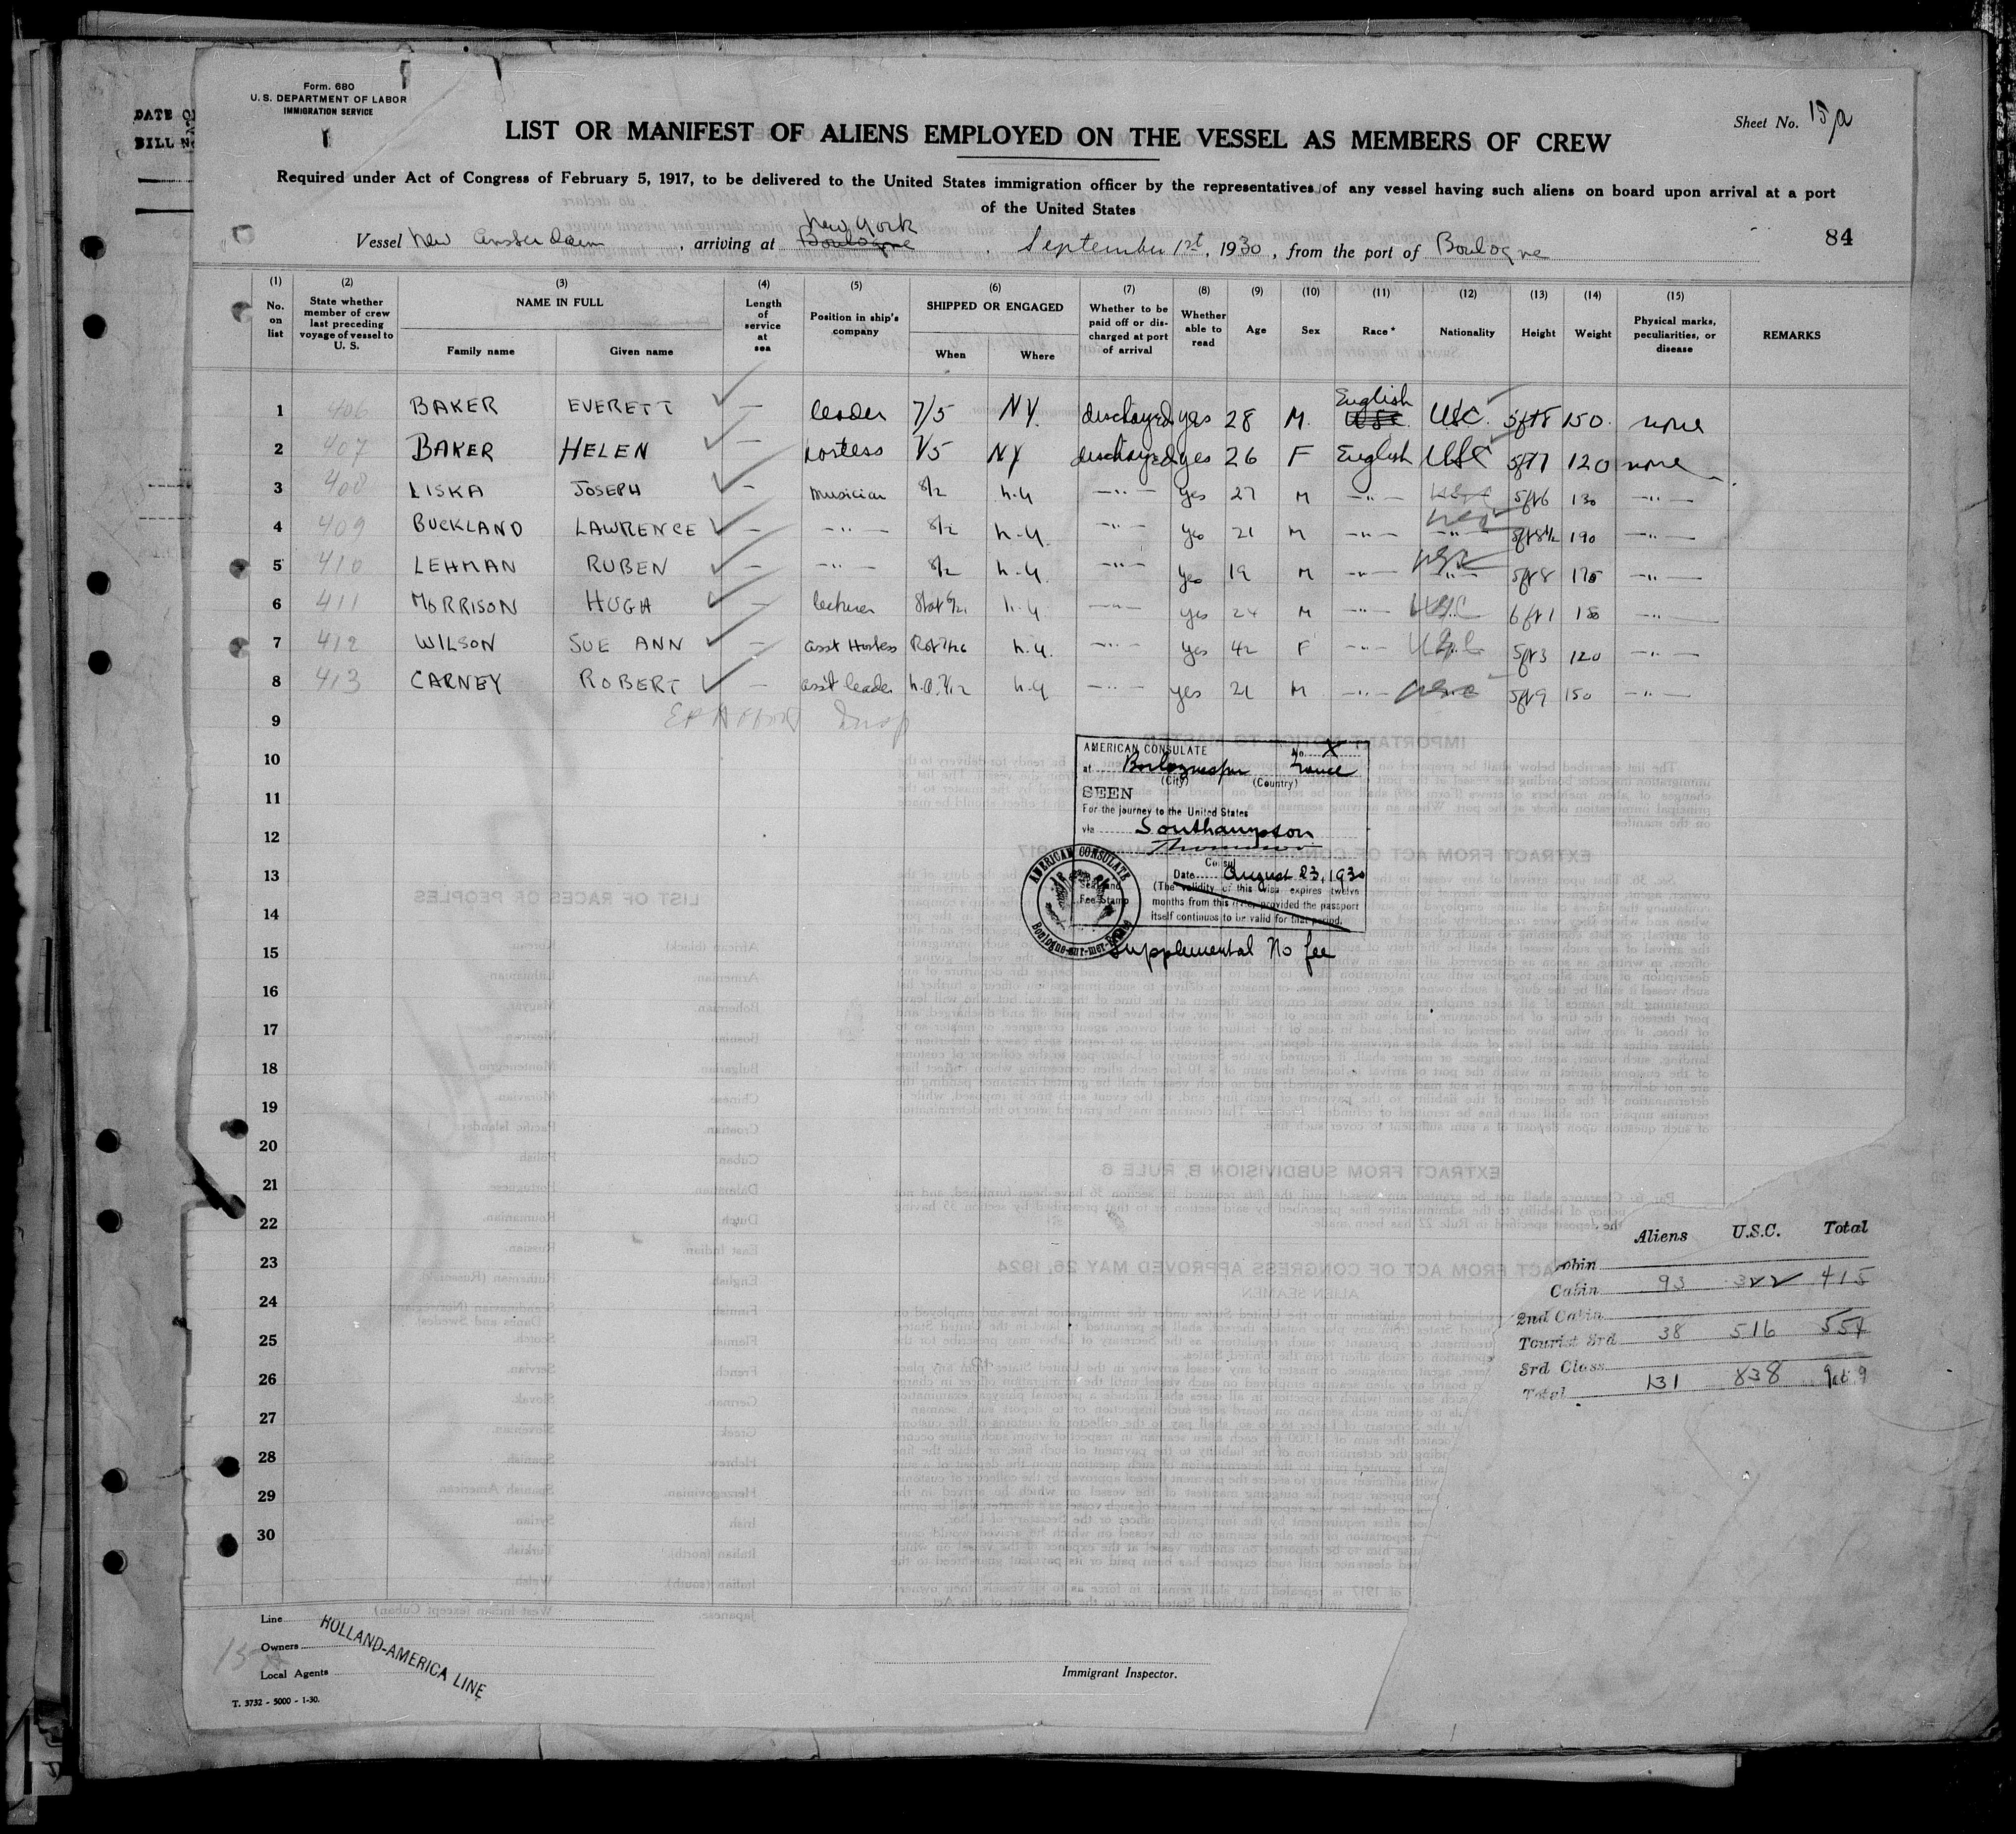 Form. 680
U. S. DEPARTMENT OF LABOR
IMMIGRATION SERVICE
DATE O
BILL N
Sheet No. 15a
LIST OR MANIFEST OF ALIENS EMPLOYED ON THE VESSEL AS MEMBERS OF CREW
Required under Act of Congress of February 5, 1917, to be delivered to the United States immigration officer by the representatives of any vessel having such aliens on board upon arrival at a port
of the United States
New York
Vessel New Amsterdam, arriving at Boulogne, September 1st, 1930, from the port of Boulogne
84
(1) (2) (3) (4) (5) (6) (7) (8) (9) (10) (11) (12) (13) (14) (15)
No. on list
State whether member of crew last preceding voyage of vessel to U. S.
NAME IN FULL
Family name Given name
Length of service at sea
Position in ship's company
SHIPPED OR ENGAGED
When Where
Whether to be paid off or discharged at port of arrival
Whether able to read
Age Sex Race* Nationality Height Weight
Physical marks, peculiarities, or disease
REMARKS
English
1 406 BAKER EVERETT — leader 7/5 NY. discharged yes 28 M. USC. 5ft8 150. none
2 407 BAKER HELEN — hostess 7/5 NY discharged yes 26 F English USC 5ft7 120 none
3 408 LISKA JOSEPH — musician 8/2 n.y. —"— yes 27 M —"— USC 5ft6 130 —"—
4 409 BUCKLAND LAWRENCE — —"— 8/2 n.y. —"— yes 21 M —"— USC 5ft8½ 190 —"—
5 410 LEHMAN RUBEN — —"— 8/2 n.y. —"— yes 19 M —"— USC 5ft8 175 —"—
6 411 MORRISON HUGH — lecturer n.y. —"— yes 24 M —"— USC 6ft1 —"—
7 412 WILSON SUE ANN — asst Hostess n.y. —"— yes 42 F —"— USC 5ft3 120 —"—
8 413 CARNEY ROBERT — ass't leader n.y. —"— yes 21 M —"— USC 5ft9 150 —"—
9
10
11
12
13
14
15
16
17
18
19
20
21
22
23
24
25
26
27
28
29
30
AMERICAN CONSULATE No. X
at Boulogne s/m France
(City) (Country)
SEEN
For the journey to the United States
via Southampton
Consul
Date August 23, 1930
(The validity of this visa expires twelve
months from this date, provided the passport
itself continues to be valid for that period.
AMERICAN CONSULATE
Seal and
Fee Stamp
Boulogne-sur-mer, France
Supplemental No fee
Aliens U.S.C. Total
Cabin
Cabin 93 322 415
2nd Cabin
Tourist 3rd 38 516 554
3rd Class
Total 131 838 969
Line
Owners
Local Agents
HOLLAND-AMERICA LINE
Immigrant Inspector.
T. 3732 - 5000 - 1-30.